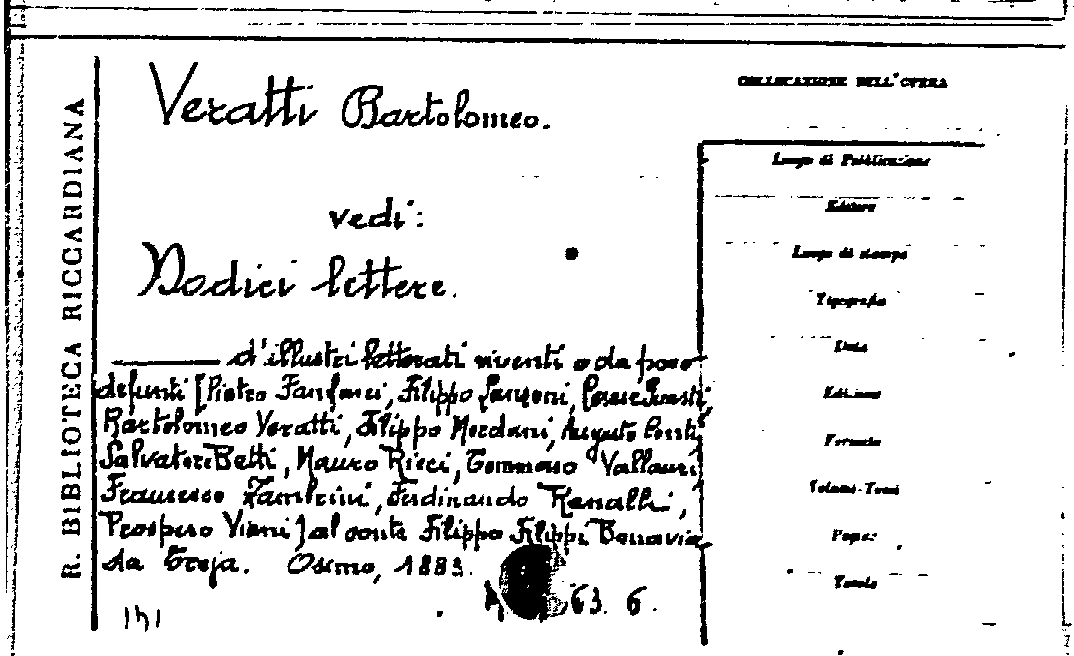 R. BIBLIOTECA RICCARDIANA
Veratti Bartolomeo.
vedi:
Dodici lettere.
d'illustri letterati viventi o da poco
defunti [Pietro Fanfani, Filippo Lanzoni, Cesare Guasti,
Bartolomeo Veratti, Filippo Mordani, Augusto Conti,
Salvatore Betti, Mauro Ricci, Tommaso Vallauri,
Francesco Zambrini, Ferdinando Ranalli,
Prospero Viani] al conte Filippo Filippi Benavia
da Treja. Osimo, 1883.
63. 6.
COLLOCAZIONE DELL'OPERA
Luogo di Pubblicazione
Editore
Luogo di stampa
Tipografia
Data
Edizione
Formato
Volume-Tomi
Pagine
Tavole